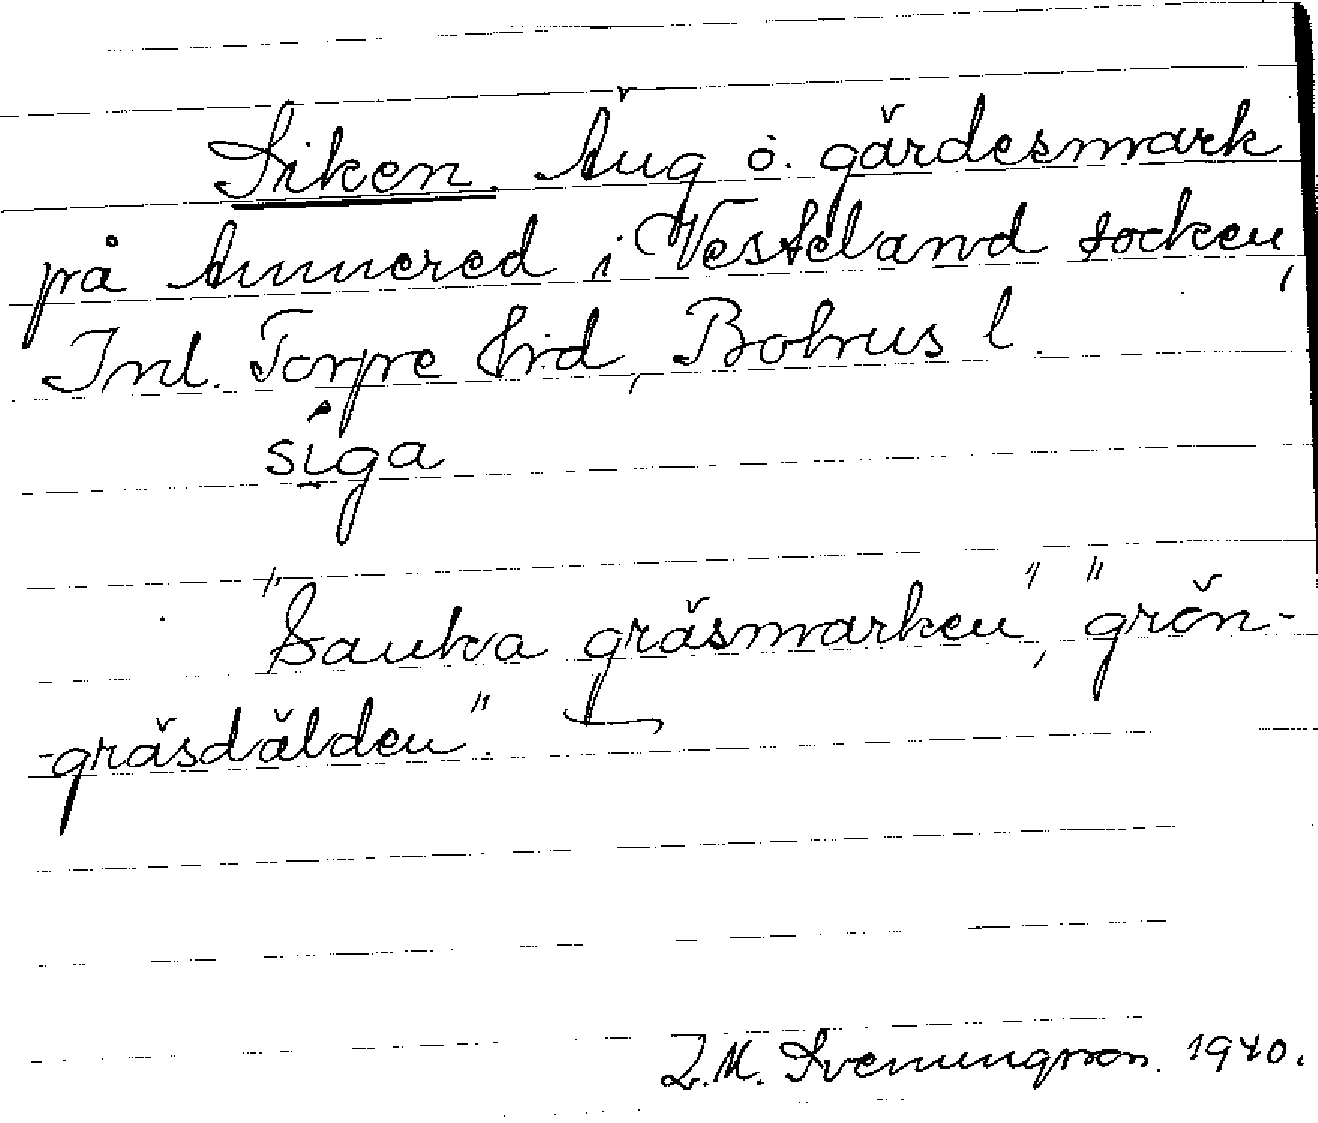 Siken. Äng o. gärdesmark
på Annered i Vesteland socken,
Inl. Torpe hrd, Bohus l.
siga
"Sanka gräsmarken", "grön-
-gräsdälden".
Z.M. Sveningson. 1940.